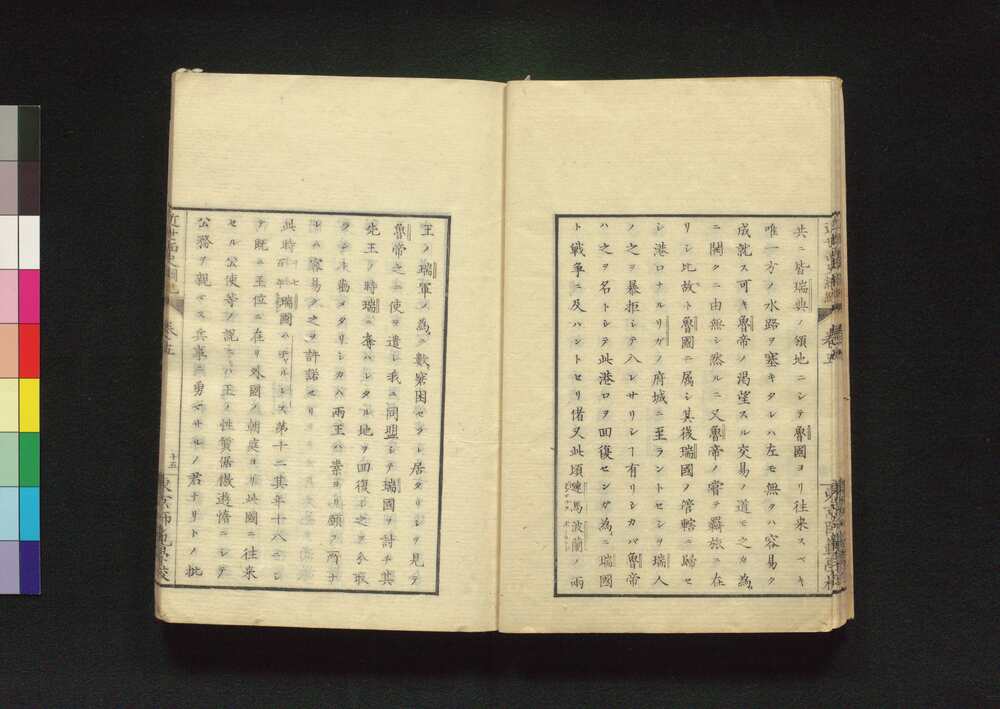 共ニ皆瑞典ノ領地ニシテ魯國ヨリ往来スベキ
唯一方ノ水路ヲ塞キタレハ左モ無クハ容易ク
成就ス可キ魯帝ノ渇望スル交易ノ道モ之カ為
ニ開クニ由無シ然ルニ又魯帝ノ嘗テ羇旅ニ在
リシ比故ト魯國ニ属シ其後瑞國ノ管轄ニ帰セ
シ港口ナルリガノ府城ニ至ラントセシヲ瑞人
ノ之ヲ暴拒シテ入レサリシヿ有リシカバ魯帝
ハ之ヲ名トシテ此港口ヲ回復センガ為ニ瑞國
ト戦争ニ及ハントセリ偖又此頃嗹馬波蘭ノ兩
王ノ瑞軍ノ為ニ數窮困セラレ居タリシヲ見テ
魯帝之ニ使ヲ遣シ我ニ同盟シテ瑞國ヲ討チ其
先王ノ時瑞ニ奪ハレタル地ヲ回復シ之ヲ分取
ラン勧メタリシカバ兩王ハ素ヨリ願フ所ナ
レハ容易ク之ヲ許諾セリ
此時瑞國ハチャルレス第十二其年十八ニシ
テ既ニ王位ニ在リ外國ノ朝庭ヨリ此國ニ往来
セル公使等ノ説ニハ王ノ性質倨傲遊惰ニシテ
公務ヲ親セス兵事ニ勇マサルノ君ナリトノ批
近世西史綱紀
卷五
十五
東京師範學校